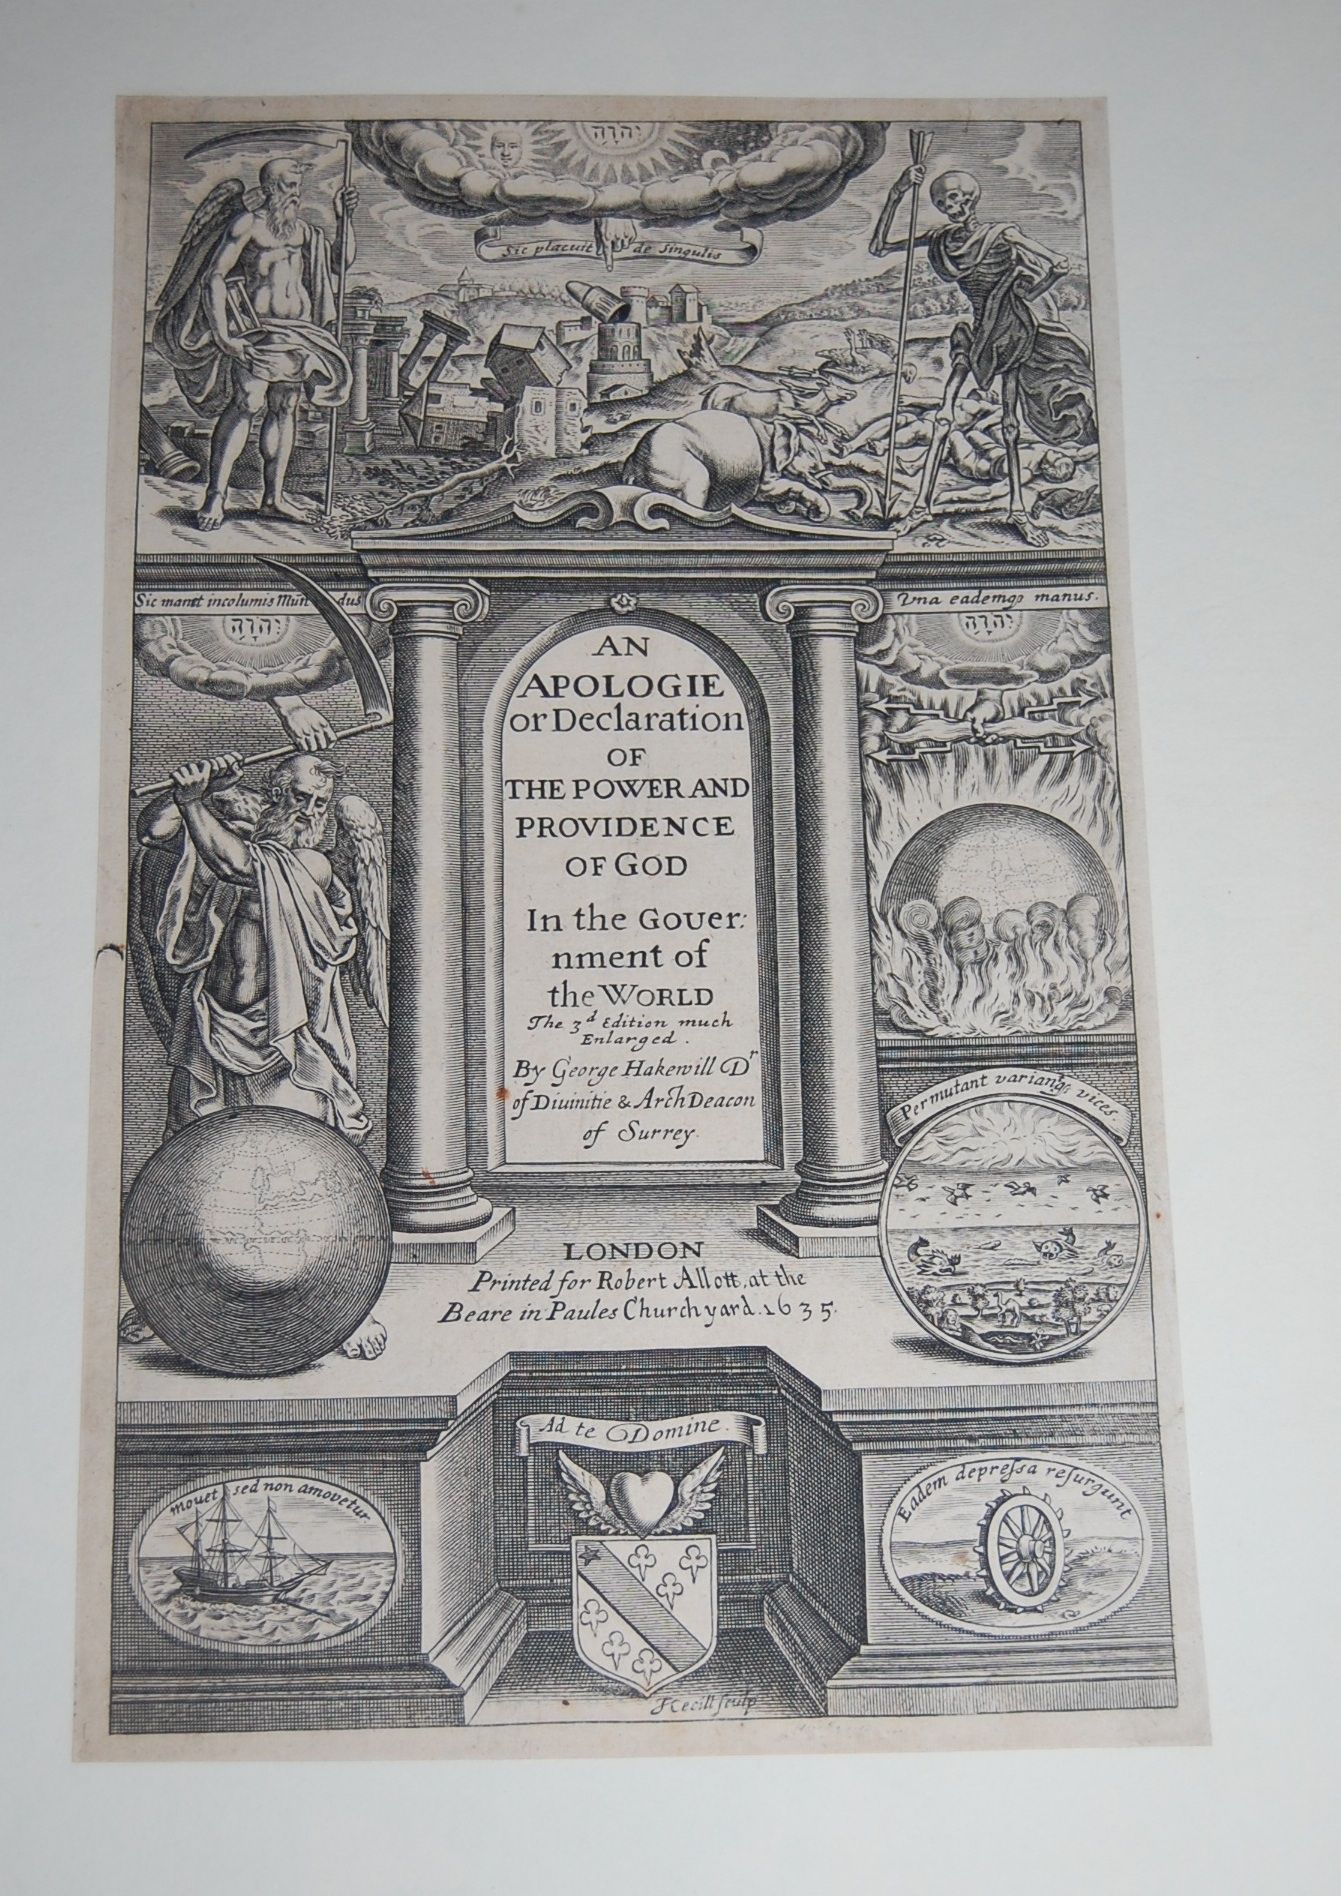 יהוה
Sic placuit de singulis
Sic manet incolumis Mundus
Vna eademqꝫ manus.
יהוה
יהוה
AN
APOLOGIE
or Declaration
OF
THE POWER AND
PROVIDENCE
OF GOD
In the Gouer:
nment of
the WORLD
The 3d Edition much
Enlarged.
By George Hakewill Dr
of Diuinitie & ArchDeacon
of Surrey.
Permutant variantqꝫ vices
LONDON
Printed for Robert Allott, at the
Beare in Paules Churchyard. 1635.
Ad te Domine.
mouet sed non amovetur
Eadem depreſsa reſurgunt
TCecill ſculp